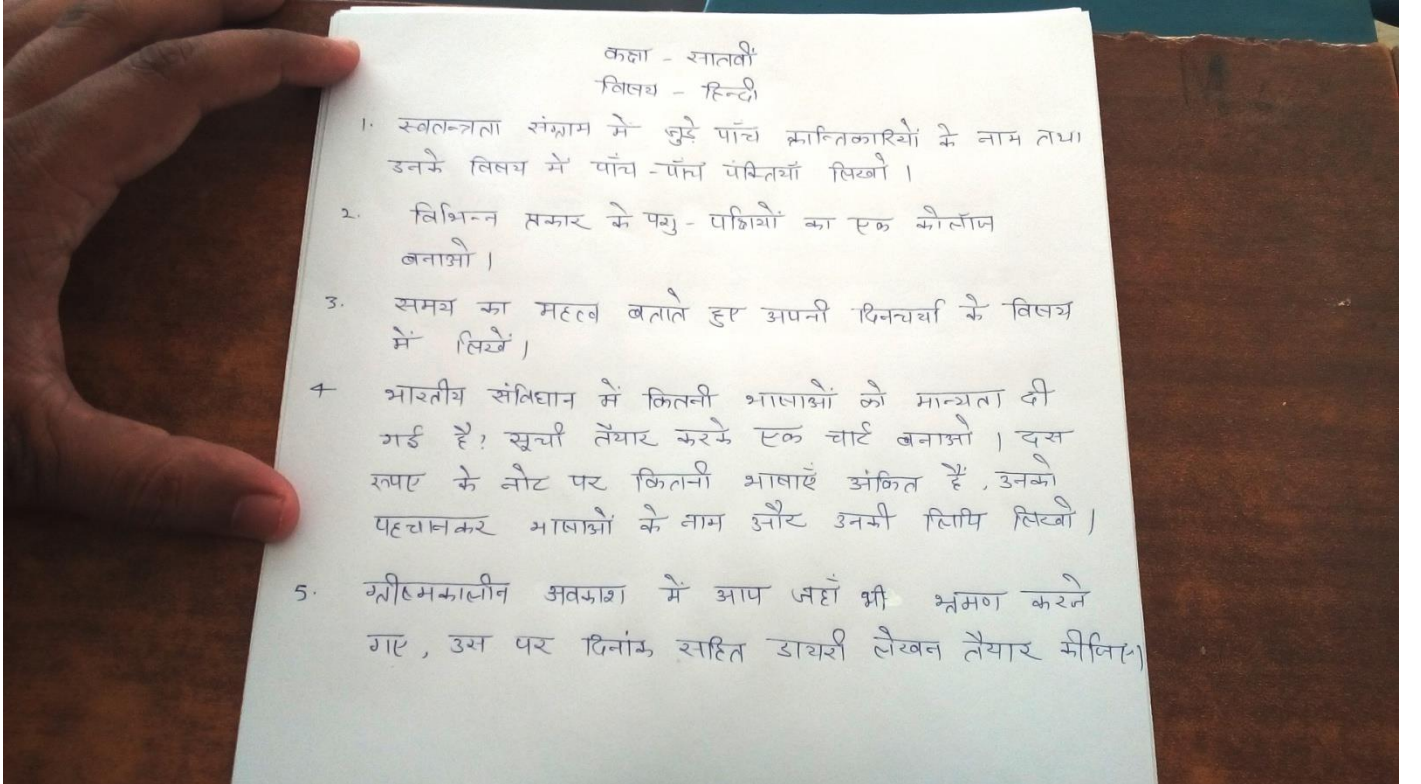 कक्षा - सातवीं
विषय - हिन्दी
1. स्वतन्त्रता संग्राम में जुड़े पाँच क्रान्तिकारियों के नाम तथा
उनके विषय में पाँच-पाँच पंक्तियाँ लिखो ।
2. विभिन्न प्रकार के पशु - पक्षियों का एक कोलॉज
बनाओ ।
3. समय का महत्व बताते हुए अपनी दिनचर्या के विषय
में लिखें ।
4 भारतीय संविधान में कितनी भाषाओं को मान्यता दी
गई है? सूची तैयार करके एक चार्ट बनाओ । दस
रूपए के नोट पर कितनी भाषाएँ अंकित हैं, उनको
पहचानकर भाषाओं के नाम और उनकी लिपि लिखो ।
5. ग्रीष्मकालीन अवकाश में आप जहाँ भी भ्रमण करने
गए, उस पर दिनांक सहित डायरी लेखन तैयार कीजिए ।